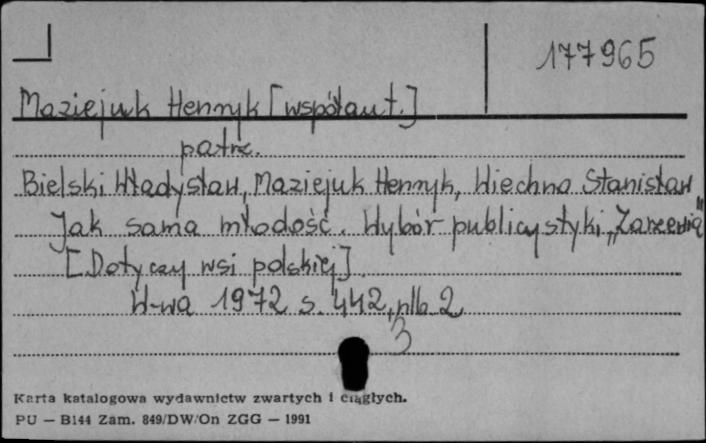 177965
Maziejuk Henryk [współaut.]
patrz.
Bielski Władysław, Maziejuk Henryk, Wiechno Stanisław
Jak sama młodość. Wybór publicystyki „Zarzewia”
[Dotyczy wsi polskiej].
W-wa 1972 s. 442, nlb 2
3
Karta katalogowa wydawnictw zwartych i ciągłych.
PU — B144 Zam. 849/DW/On ZGG — 1991